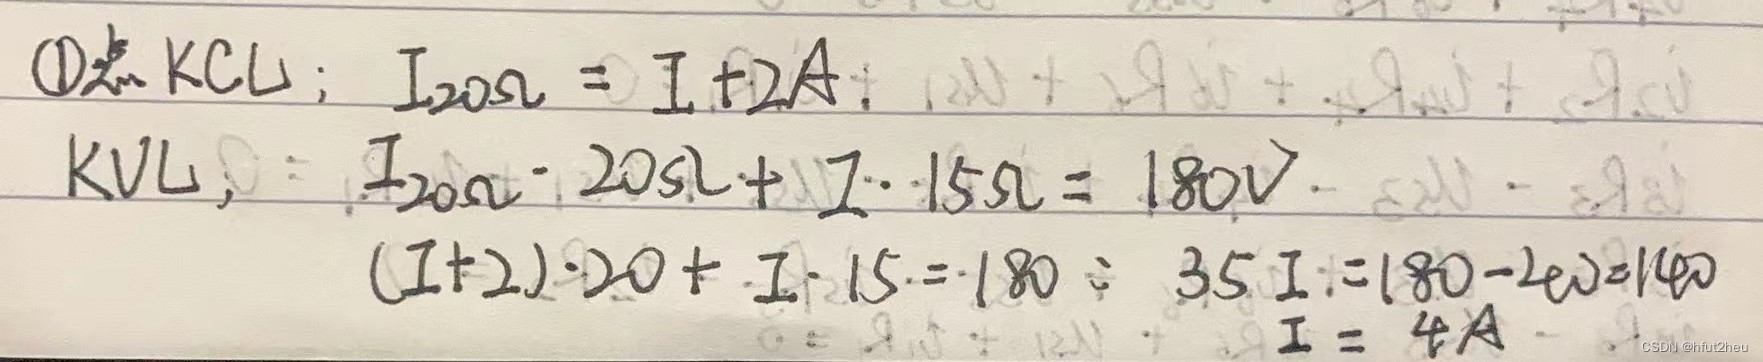 ①点 KCL; I₂₀Ω = I+2A.
KVL; I₂₀Ω · 20Ω + I · 15Ω = 180V
(I+2)·20 + I · 15 = 180 ∴ 35 I = 180-40=140
I = 4A
CSDN @hfut2heu